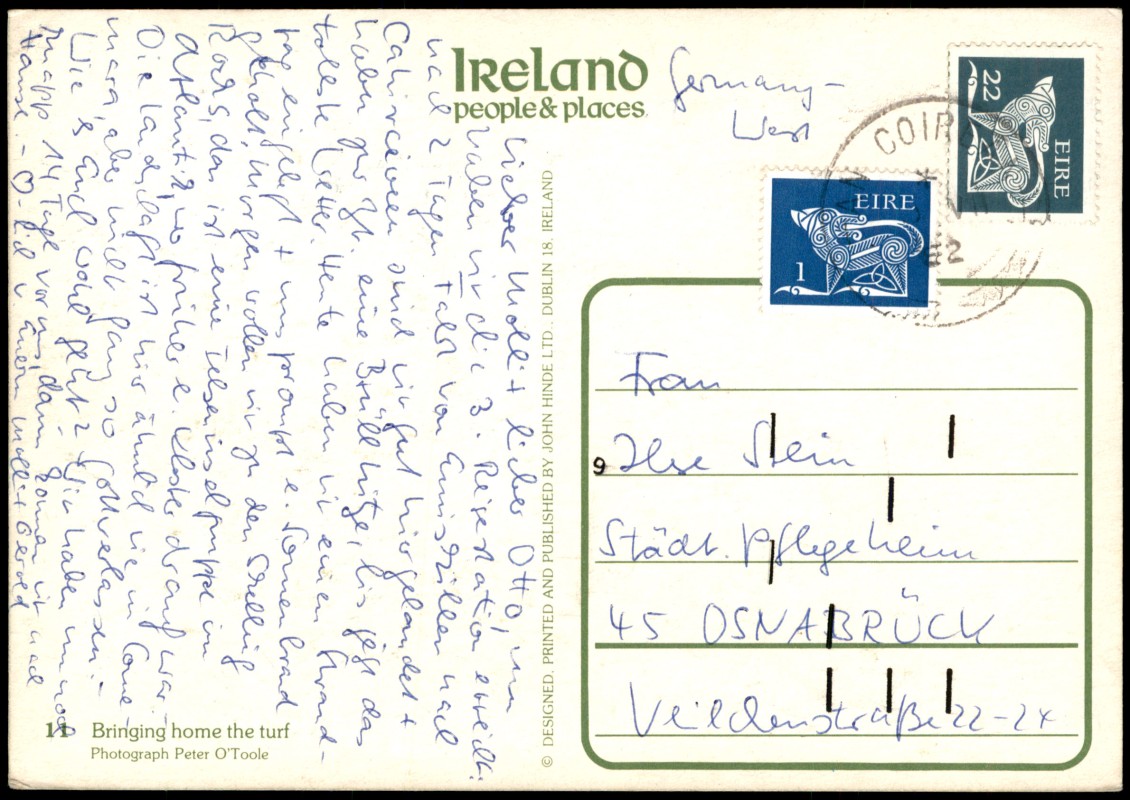 IRELAND
people & places
Germany-
West
22
EIRE
EIRE
1
COIR
82
Lieber Molli + lieber Otto, nun
haben wir die 3. Reisestation erreicht:
nach 2 Tagen Fahrt von Enniskillen nach
Cahirciveen sind wir gut hier gelandet +
haben zur Zt. eine Brüllhitze, bis jetzt das
tollste Wetter. Heute haben wir einen Strand-
tag eingelegt + uns prompt e. Sonnenbrand
geholt. Morgen wollen wir zu den Skellig
Rocks, das ist eine Felseninselgruppe im
Atlantik, wo früher e. Kloster drauf war.
Die Landschaft ist hier ähnlich wie in Conne-
mara, aber nicht ganz so gottverlassen.-
Wie es Euch wohl geht? Wir haben nun noch
knapp 14 Tage vor uns, dann kommen wir nach
Hause. - ♡-lich v. Euern Molli + Gerold
11 Bringing home the turf
Photograph Peter O'Toole
© DESIGNED, PRINTED AND PUBLISHED BY JOHN HINDE LTD., DUBLIN 18, IRELAND
Frau
9
Ilse Stein
Städt. Pflegeheim
45 OSNABRÜCK
Veilchenstraße 22-24